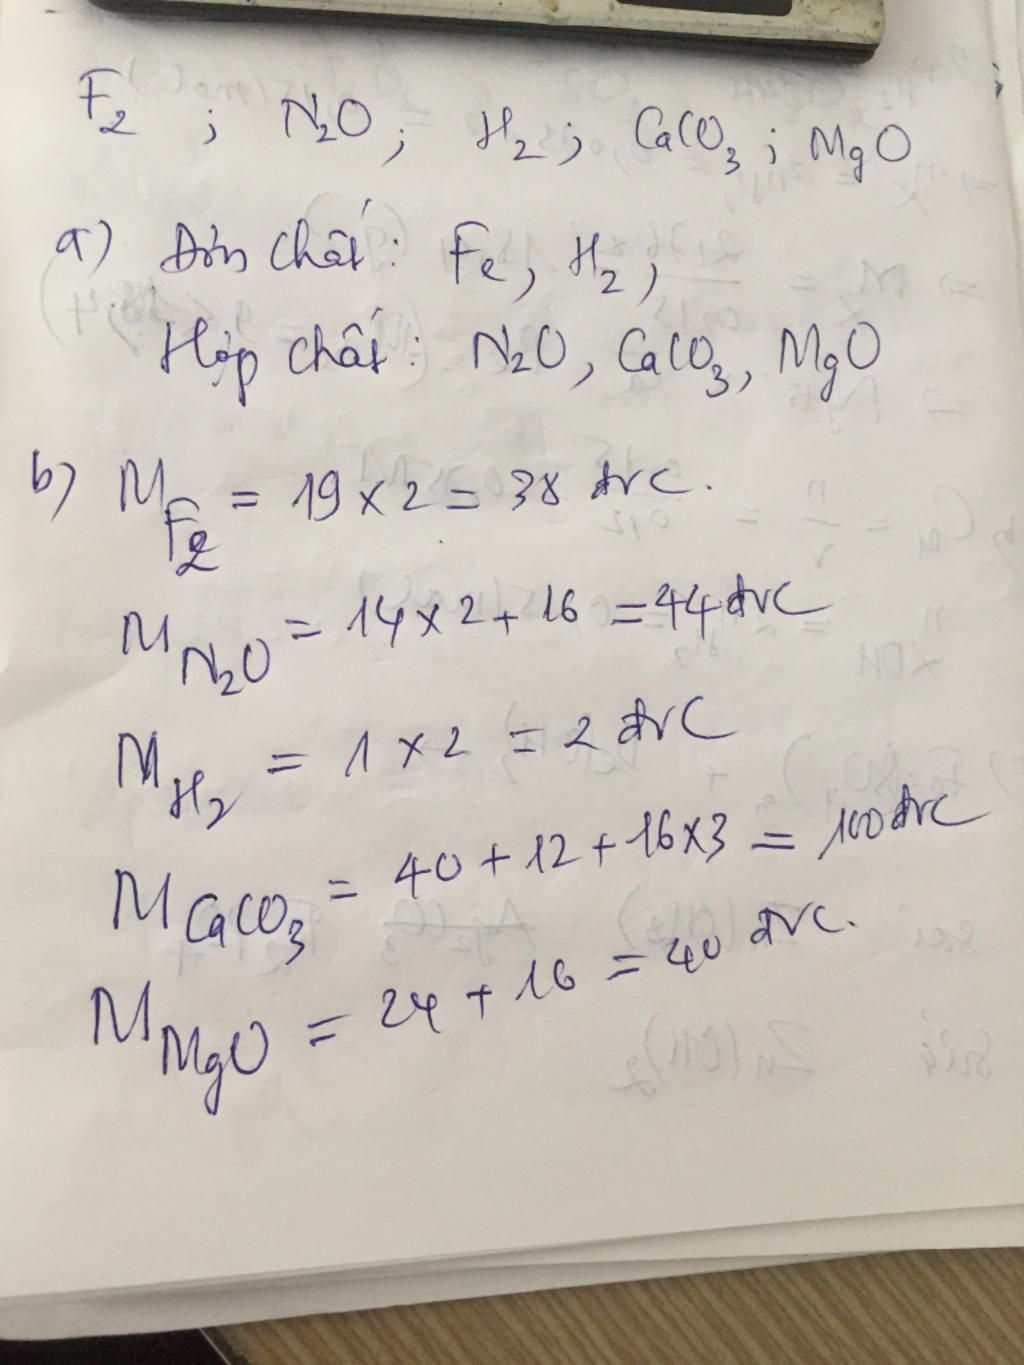 F₂ ; N₂O ; H₂ ; CaCO₃ ; MgO
a) Đơn chất : Fe, H₂,
Hợp chất : N₂O, CaCO₃, MgO
b) M F₂ = 19 × 2 = 38 đvC.
M N₂O = 14 × 2 + 16 = 44 đvC
M H₂ = 1 × 2 = 2 đvC
M CaCO₃ = 40 + 12 + 16 × 3 = 100 đvC
M MgO = 24 + 16 = 40 đvC.